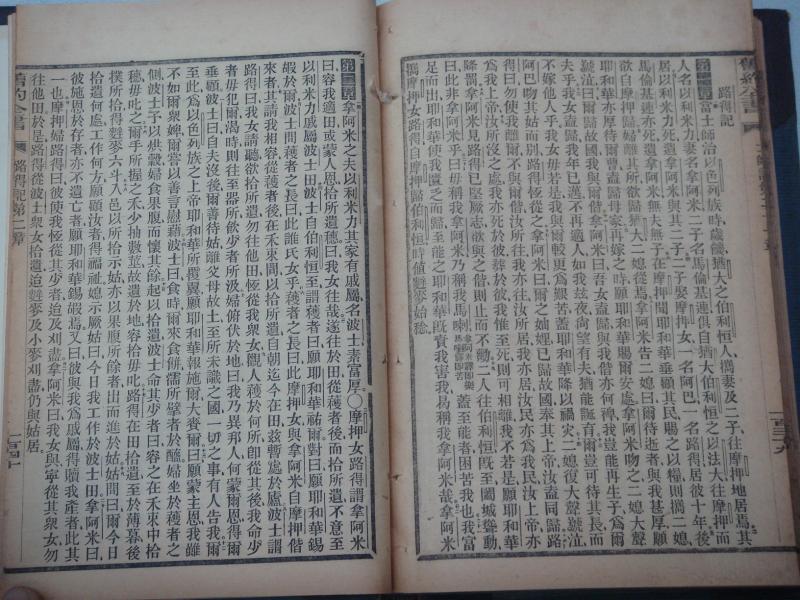 路得記
當士師治以色列族時歲饑猶大之伯利恒人攜妻及二子往摩押地居焉其
人名以利米力妻名拿阿米二子名馬倫基連俱自猶大伯利恒之以法大往摩押而
居以利米力死遺拿阿米與其二子二子娶摩押女一名阿巴一名路得居彼十年後
馬倫基連亦死遺拿阿米無夫無子在摩押聞耶和華垂顧其民賜之以糧則攜二媳
欲自摩押歸婦離其所欲歸猶大二媳從焉拿阿米告二媳曰爾待逝者與我甚厚願
耶和華亦厚待爾曹盍歸母家再嫁之時願耶和華賜爾安處拿阿米吻之二媳大聲
號泣曰爾歸故國我與爾偕行拿阿米曰吾女盍歸與我偕亦何裨我豈能再生子為爾
夫乎我女盍歸我年已邁不再適人如我茲夜尚望有夫猶能誕育爾豈可待其長而
不嫁他人乎我女毋若是我與爾較更爲艱苦蓋耶和華降以禍災二媳復大聲號泣
阿巴吻其姑而別路得恆從之拿阿米曰爾之妯娌已歸故國奉其上帝汝盍同歸路
得曰勿使我離爾爾所往我亦往汝所居我亦居汝民亦為我民汝上帝亦
為我上帝汝所沒之處我亦死於彼葬於彼我惟至死則可相離我不若是願耶和華
降罰拿阿米見路得已堅厥志欲與之偕則止而不勸二人往伯利恒既至闔城聳動
曰此非拿阿米乎曰毋稱我拿阿米乃稱我馬喇蓋至能者困苦我也我富
足而出耶和華使我匱乏而歸至能之耶和華既責我害我曷稱我拿阿米哉
攜摩押女路得自摩押歸伯利恒時值麰麥始稔
第二章 拿阿米之夫以利米力其家有戚屬名波士素富厚○摩押女路得謂拿阿米
曰容我適田或蒙人恩恰所遺穗曰我女往哉遂往於田從穫者後而拾所遺不意至
以利米力戚屬波士田波士自伯利恒至謂穫者曰願耶和華祐爾對曰願耶和華錫
嘏於爾波士問穫者之長曰此誰氏女乎穫者之長曰此摩押女與拿阿米自摩押偕
來者其請我相容從穫者後在禾束間以拾所遺自朝迄今在田茲暫處於廬波士謂
路得曰我女請聽欲拾所遺勿往他田恆從我衆女觀人穫於何所卽從其後我命少
者毋犯爾渴時則往至器所飲少者所汲婦俯伏於地曰我乃異邦人何蒙爾恩得爾
垂顧波士曰自夫沒後爾善待姑離父母故土至所未識之國一切之事有人告我爾
至此為以色列族之上帝耶和華所覆翼願耶和華報施爾大賚爾曰願蒙主恩我雖
不如爾衆婢爾嘗以善言慰藉波士曰食時爾來食餅濡所擘者於醯婦坐於穫者之
側波士予以烘穀婦食果腹而懷其餘起以拾遺波士命其少者曰容之在禾束中拾
穗毋叱之爾手所握之禾少抽數莖故遺於地容拾毋叱路得在田拾遺至於薄暮後
撲所拾得麰麥六斗入邑以所拾示姑亦以果腹所餘者出而進於姑姑問曰爾今日
拾遺何處工作何方願顧汝者得福祉媳示厥姑曰今日我工作於波士田拿阿米曰
彼施恩於存者亦不遺亡者願耶和華錫嘏焉又曰彼與我為戚屬得贖我產者此其
一也摩押婦路得曰彼使我恆從其少者迨及刈盡拿阿米曰我女與寧從其衆女勿
往他田於是路得從波士衆女拾遺迨麰麥及小麥刈盡仍與姑居
舊約全書 路得記第二章